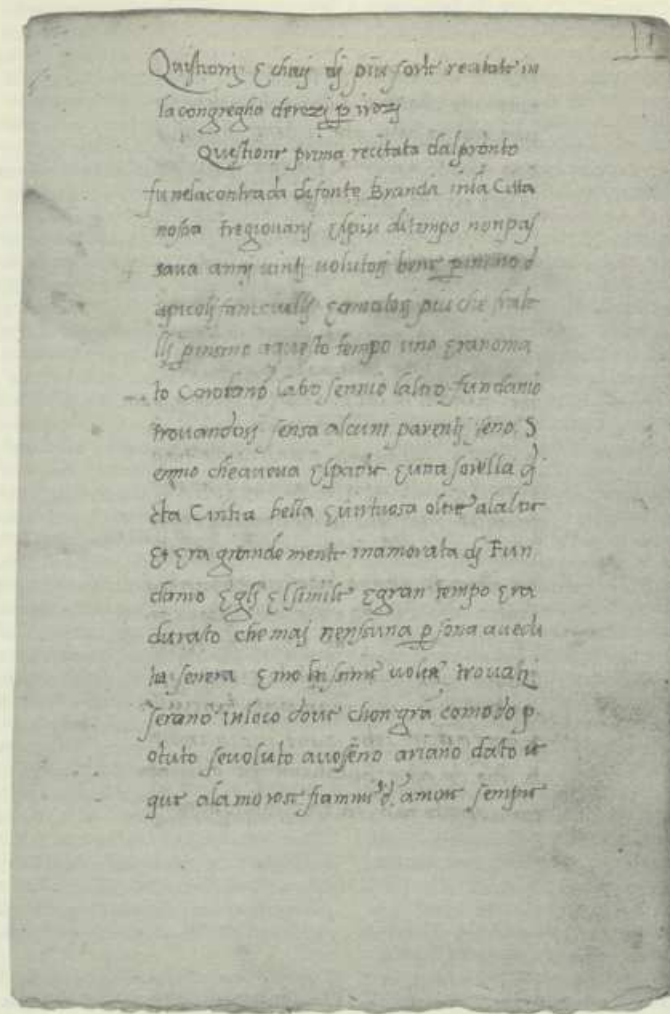 Questioni e chasi di piu sorte recitate in
la congregha de rozzi p i rozzi
Questione prima recitata dal pronto
fu nela contrada di fonte Branda in la Citta
nostra tre giovani el piu di tempo non pas
sava anni vinti voluton bene p insino d
a picoli fanciulli
lli p insino a questo tempo uno
to Corolano latro sennio laltro fundanio
trovandosi sensa alcuni parenti seno S
ennio che aveva el patre e una sorella
cta Cintia bella e virtuosa oltre alaltre
et era grande mente inamorata di Fun
danio egli el simile e gran tempo era
durato che mai nensuna p sona avedu
ta senera e moltissime volte trovati
serano in loco dove chon gra comodo p
otuto se voluto avoseno ariano dato
que ala morose fiamme d amore sempre